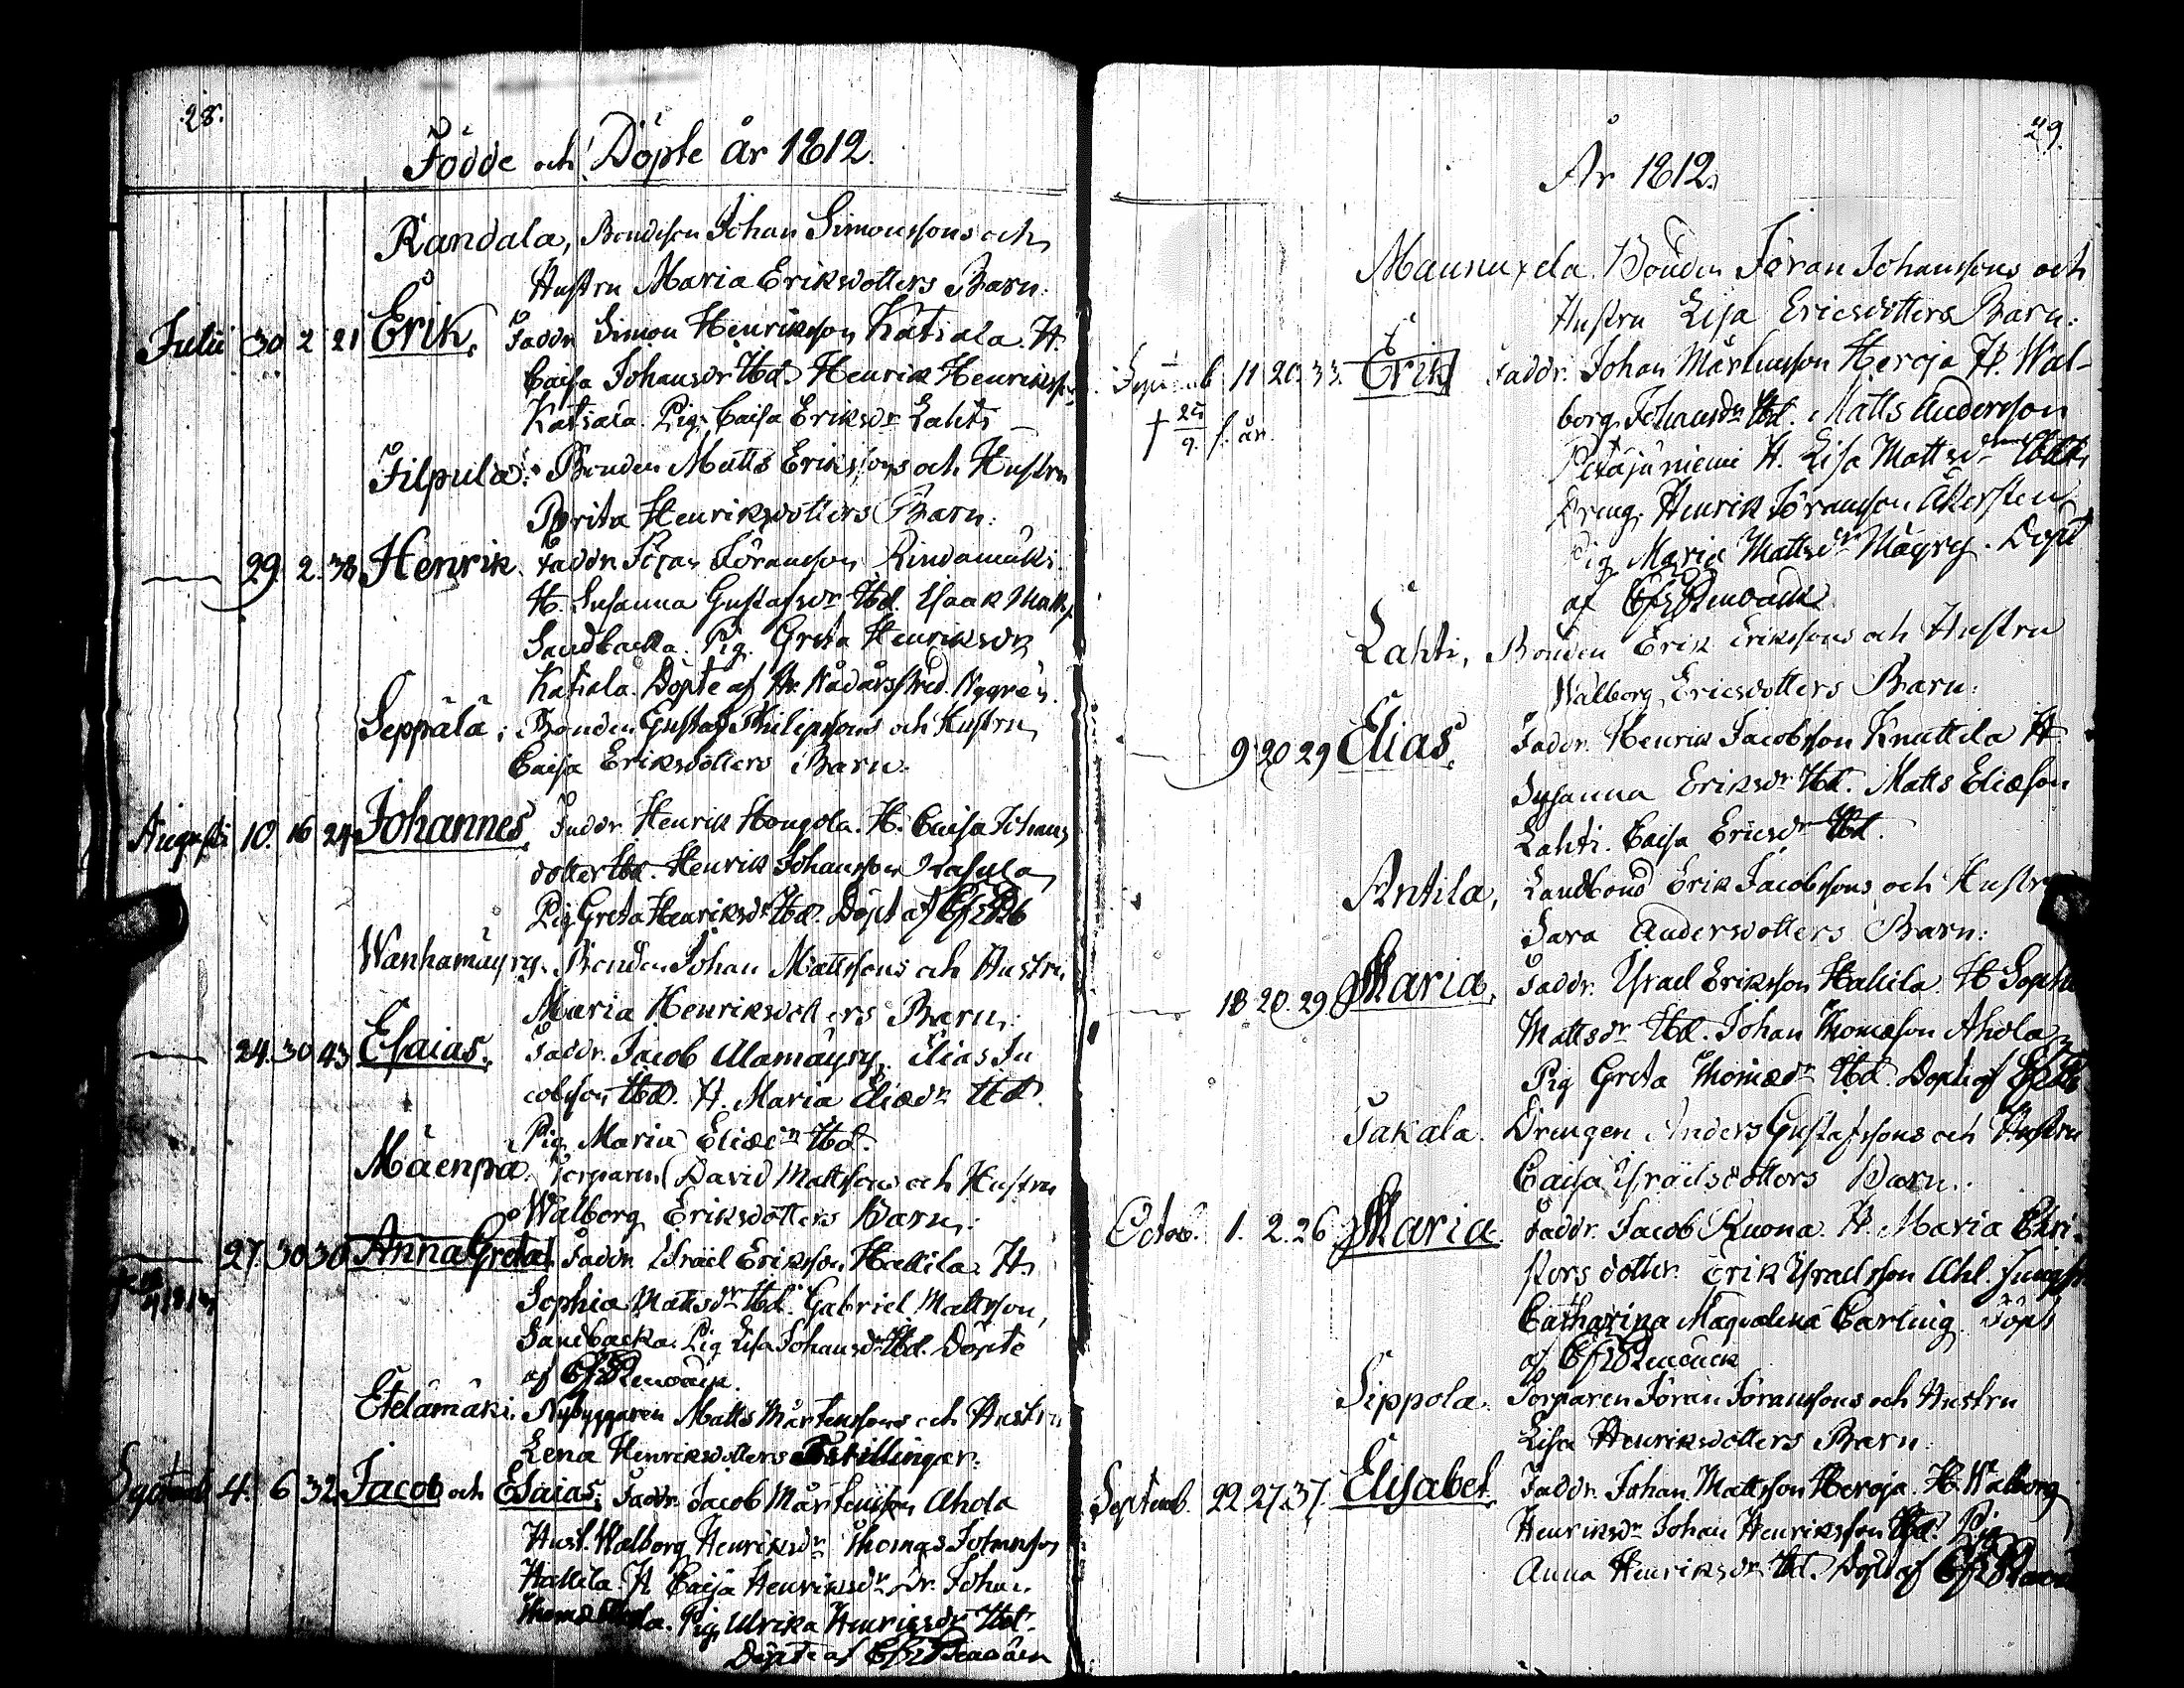 28.
Födde och Döpte år 1812.
Randala, Bondeson Johan Simonssons och
Hustru Maria Eriksdotters Barn:
Julii 30 2 21 Erik. Faddr. Simon Henriksson Katiala. H.
Caisa Johansdr Ibd. Henrik Henriksson
Katiala. Pig. Caisa Eriksdr Lahti
Filpula: Bonden Matts Erikssons och Hustru
Brita Henriksdotters Barn:
29. 2. 38 Henrik. Faddr. Göran Göransson Rindamäki
H. Susanna Gustafsdr Ibd. Isaak Matts
Sandbacka. Pig. Greta Henriksdr
Katiala. Döpte af Hr. Nådårspred. Nygrén.
Seppälä; Bonden Gustaf Philipsons och Hustru
Caisa Eriksdotters Barn.
Augusti 10. 16 24 Johannes. Faddr. Henrik Hougola. H. Caisa Johans
dotter Ibd. Henrik Johansson Kasula
Pig Greta Henriksdr Ibd. Döpt af
Wanhamäyry. Bonden Johan Mattssons och Hustru
Maria Henriksdotters Barn:
24. 30 43 Esaias. Faddr. Jacob Alamäyry. Elias Ja
cobsson Ibd. H. Maria Eliædr Ibd.
Pig. Maria Eliædr Ibd.
Mäenpä. Torparen David Mattssons och Hustru
Walborg Eriksdotters Barn:
27. 30 30 Anna Greta. Faddr. Israel Eriksson Hallila. H.
Sophia Mattsdr Ibd. Gabriel Mattsson
Sandbacka. Pig Lisa Johansdr Ibd. Döpte
af
Etelämäki. Nybyggaren Matts Mårtenssons och Hustru
Lena Henriksdotters Tvillingar.
4. 6 32 Jacob och Esaias; Faddr. Jacob Mårtensson Ahola
Hust. Walborg Henriksdr Thomas Johansson
Hallila. H Caisa Henriksdr Dr. Johan
Pig. Ulrika Henricsdr Ibd.
Döpte af
29.
År 1812.
Maunuxela. Bonden Jöran Johanssons och
Hustru Lisa Ericsdotters Barn:
11 20. 33. Erik Faddr. Johan Mårtensson Heroja H. Wal-
borg Johansdr Ibd. Matts Andersson
Petäjäniemi H. Lisa Mattsdr Ibd.
Dreng. Henrik Jöransson Åkersten
Pig Maria Mattsdr Mäyry. Döpt
af
† 25/9. s. år.
Lahti, Bonden Erik Erikssons och Hustru
Walborg Ericsdotters Barn:
9 20 29 Elias. Faddr. Henrik Jacobsson Knuttila H
Susanna Eriksdr Ibd. Matts Eliæson
Lahti. Caisa Ericsdr Ibd.
Antila, Landbond Erik Jacobssons och Hustru
Sara Andersdotters Barn:
18 20. 29 Maria. Faddr. Israel Eriksson Hallila. H Sophia
Mattsdr Ibd. Johan Thomæson Ahola
Pig Greta Thomædr Ibd. Döpt af
Jakala. Drengen Anders Gustafssons och Hustru
Caisa Israelsdotters Barn.
Octob. 1. 2. 26 Maria. Faddr. Jacob Ruona. H. Maria Chri-
stersdotter. Erik Israelsson Ahl. Jungfr
Catharina Magdalena Carling. Döpt
af
Sippola. Torparen Jöran Göranssons och Hustru
Lisa Henriksdotters Barn.
Septemb. 22 27 37. Elisabet. Faddr. Johan Mattsson Heroja. H. Walborg
Henriksdr Johan Henriksson Ibd. Pig
Anna Henriksdr Ibd. Döpt af